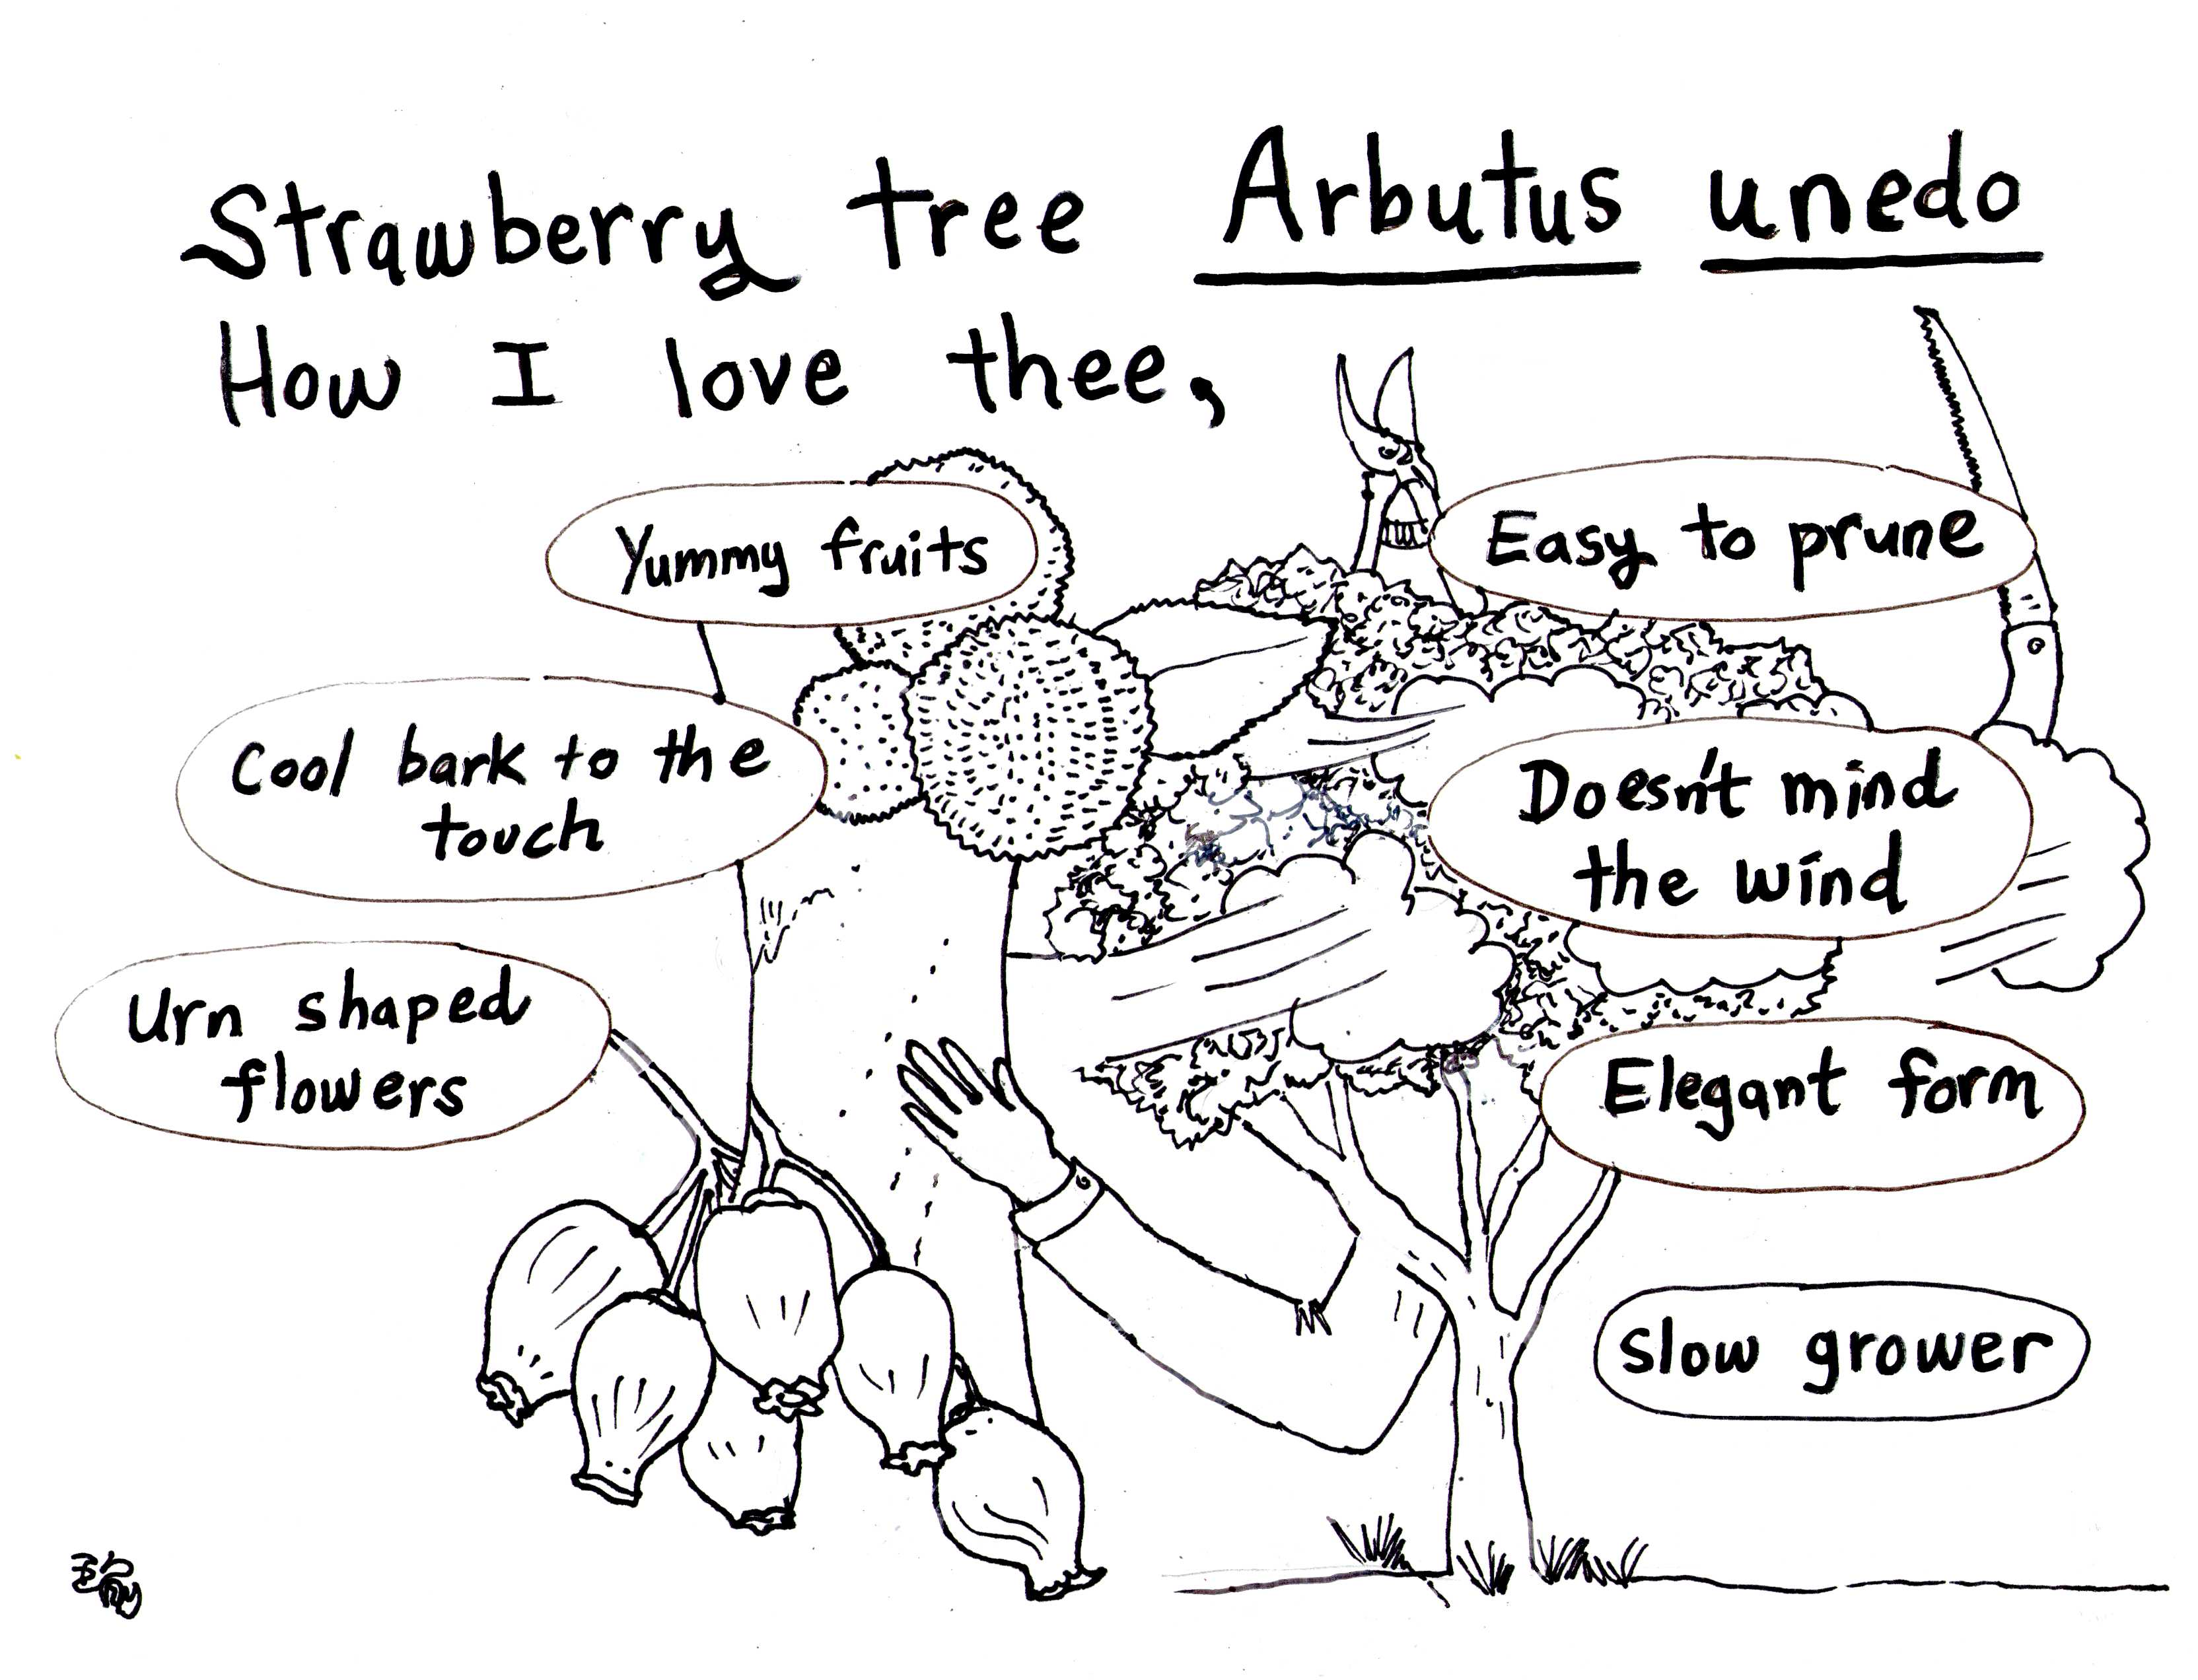 Strawberry tree Arbutus unedo
How I love thee,
Yummy fruits
Easy to prune
Cool bark to the
touch
Doesn't mind
the wind
Urn shaped
flowers
Elegant form
slow grower